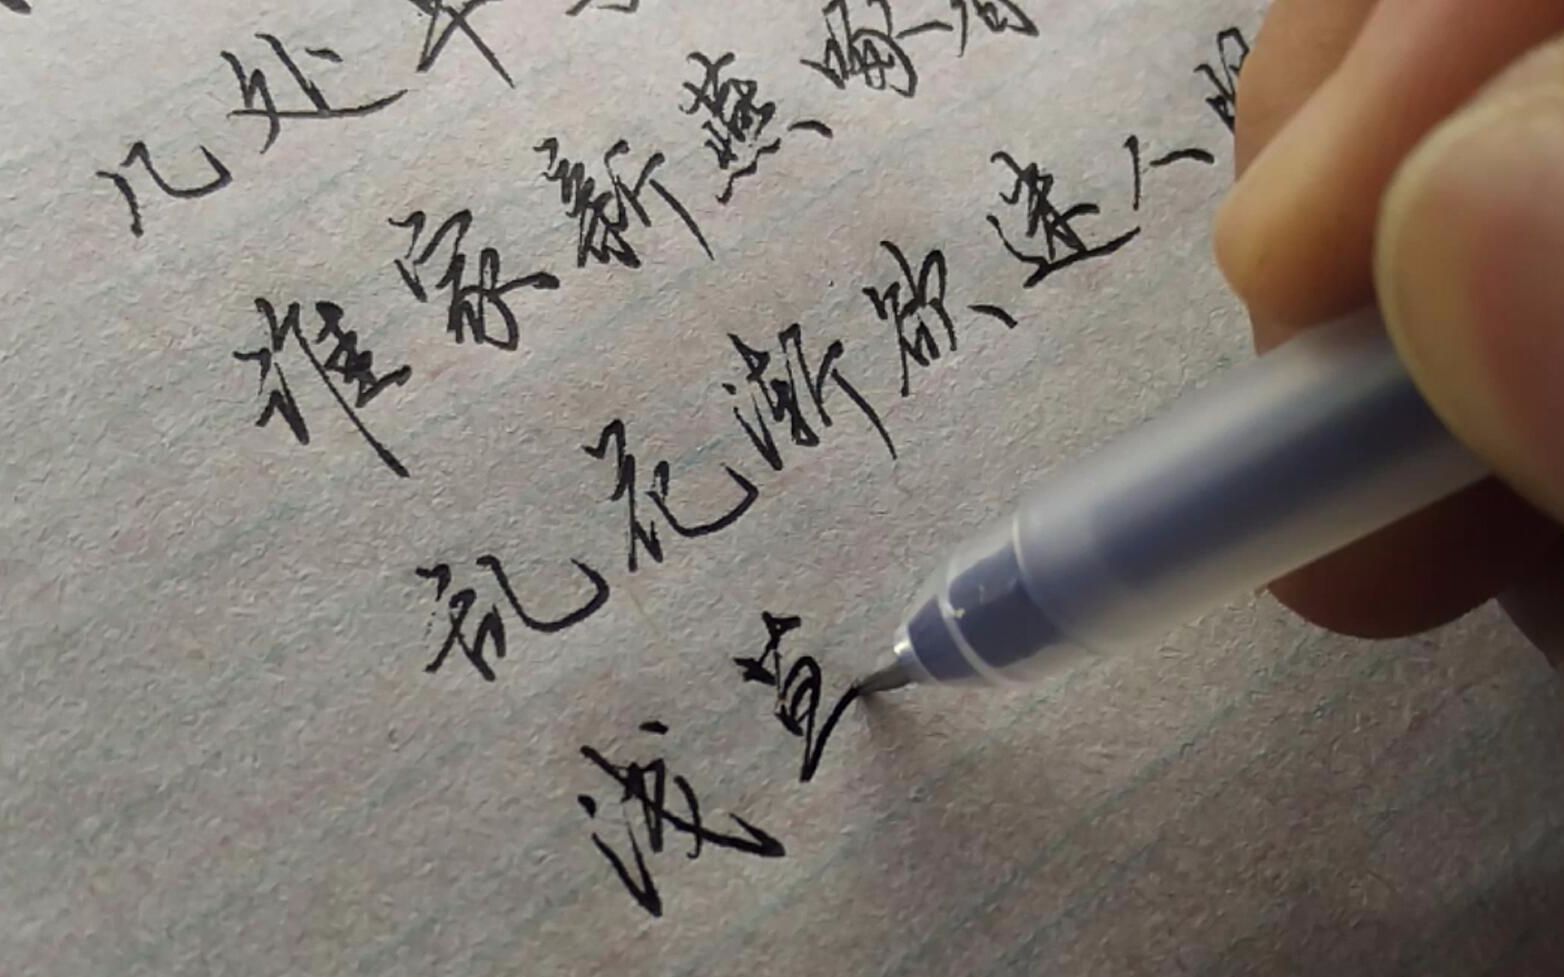 几处早
谁家新燕啄春
乱花渐欲迷人眼
浅草